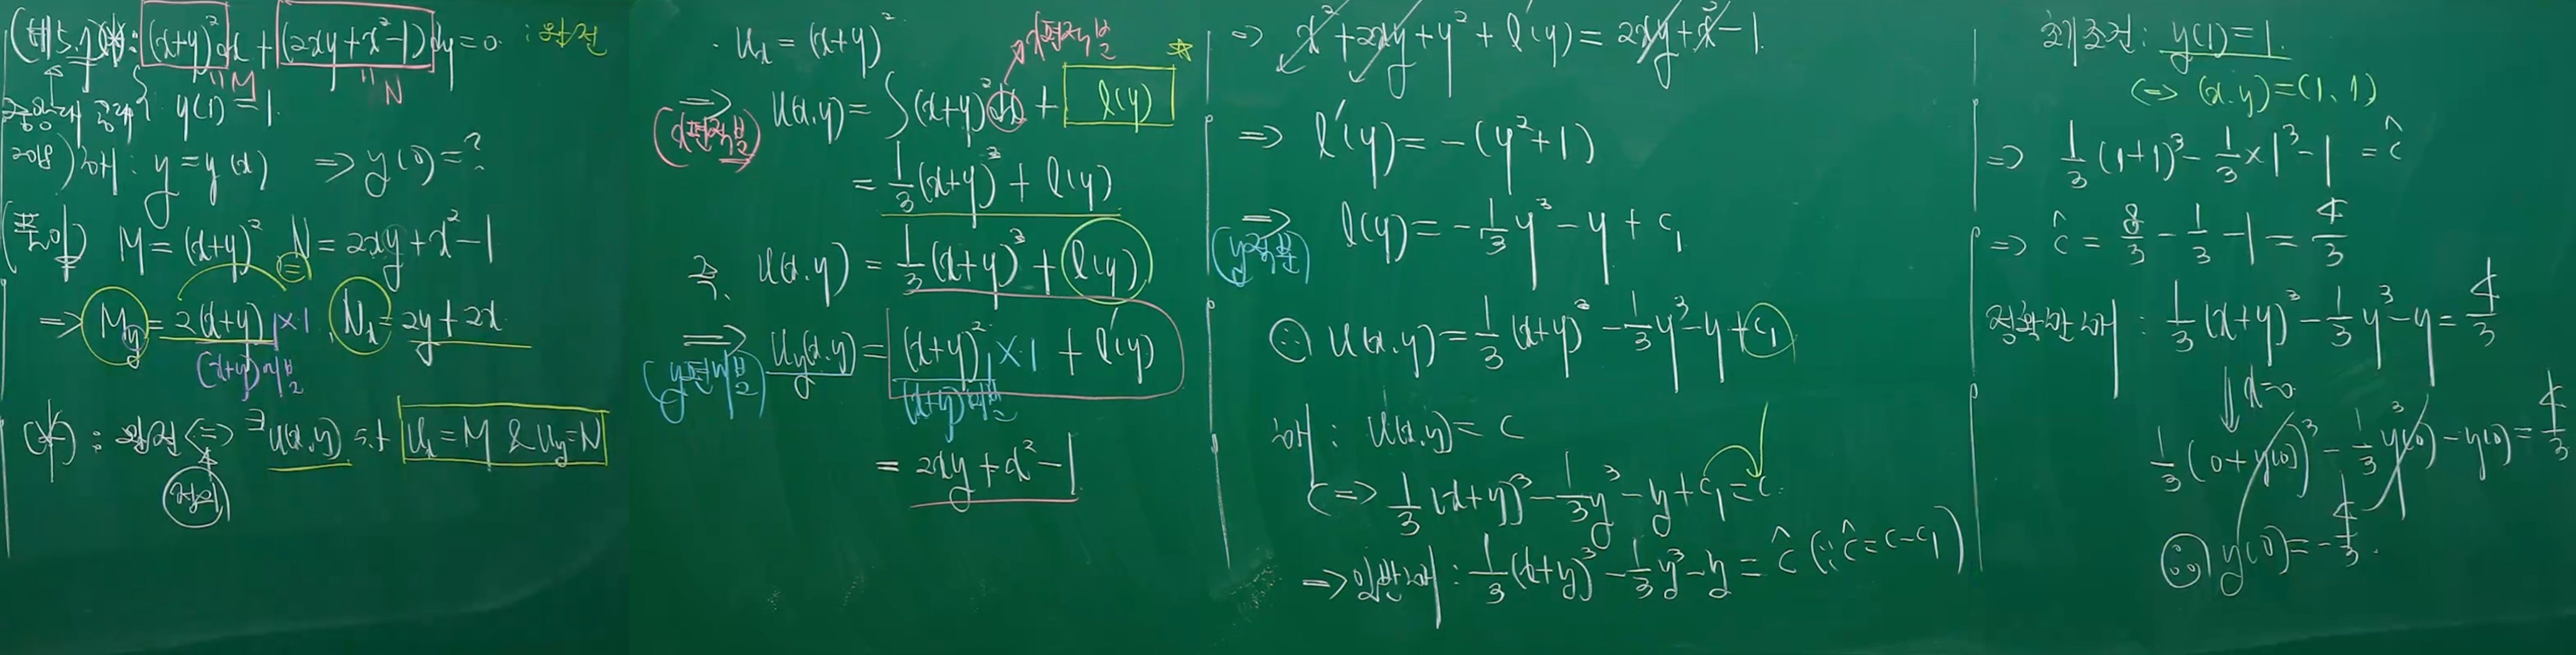 (*): (x+y)²dx + (2xy+x²-1)dy=0 : 완전
"M
"N
y(1)=1.
2018) 해: y=y(x) ⇒ y(0)=?
(풀이) M=(x+y)² N=2xy+x²-1
⇒ My=2(x+y)×1, Nx=2y+2x
(x+y)미분
(*) : 완전 ⇔ ∃u(x,y) s.t ux=M & uy=N
정의
· ux=(x+y)²
x편적분
⇒ u(x,y)=∫(x+y)²dx + l(y)
(x편적분)
=1/3(x+y)³+l(y)
즉, u(x,y)=1/3(x+y)³+l(y)
⇒ uy(x,y)=(x+y)²×1+l'(y)
(y편미분)
(x+y)미분
=2xy+x²-1
⇒ x²+2xy+y²+l'(y)=2xy+x²-1
⇒ l'(y)=-(y²+1)
⇒ l(y)=-1/3y³-y+c₁
(y적분)
∴ u(x,y)=1/3(x+y)³-1/3y³-y+c₁
해: u(x,y)=c
⇔ 1/3(x+y)³-1/3y³-y+c₁=c
⇒ 일반해: 1/3(x+y)³-1/3y³-y=ĉ (∵ĉ=c-c₁)
초기조건: y(1)=1.
⇔ (x,y)=(1,1)
⇒ 1/3(1+1)³-1/3×1³-1=ĉ
⇒ ĉ=8/3-1/3-1=4/3
정확한 해: 1/3(x+y)³-1/3y³-y=4/3
⇓x=0
1/3(0+y(0))³-1/3y³(0)-y(0)=4/3
∴ y(0)=-4/3.